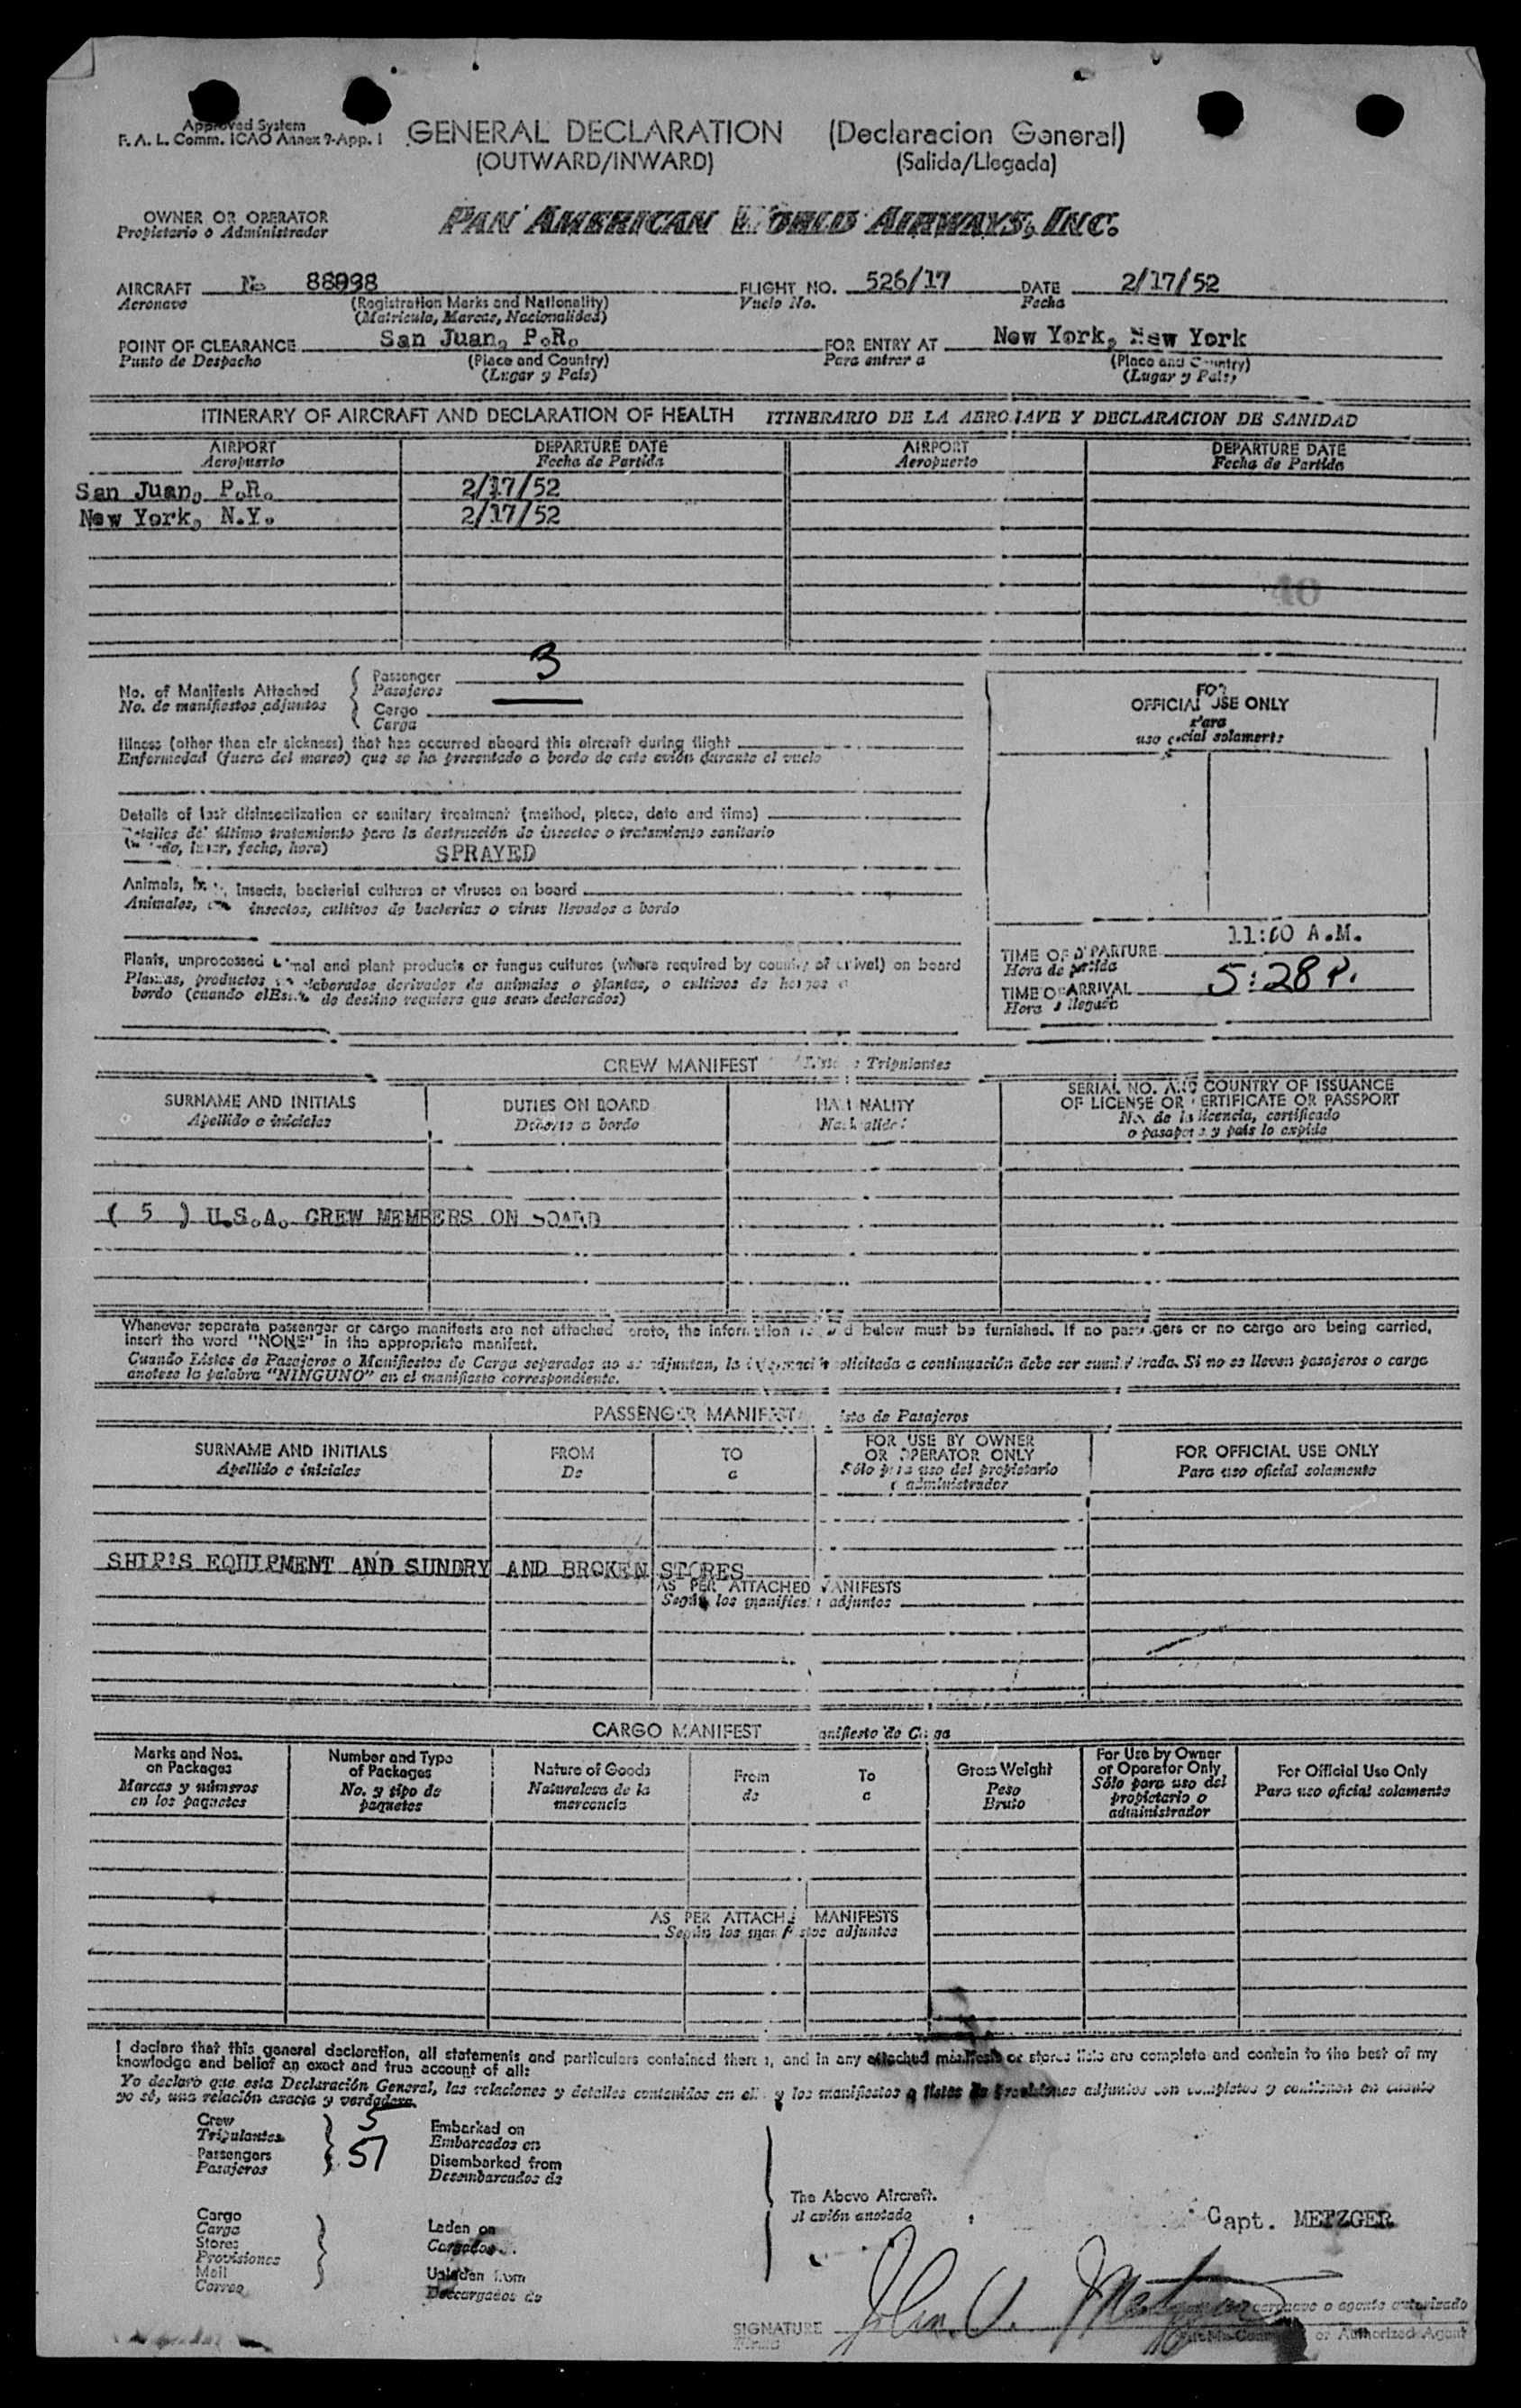 Approved System
F. A. L. Comm. ICAO Annex 9-App. 1
GENERAL DECLARATION (Declaracion General)
(OUTWARD/INWARD) (Salida/Llegada)
OWNER OR OPERATOR PAN AMERICAN WORLD AIRWAYS, INC.
Propietario o Administrador
AIRCRAFT No 88998 FLIGHT NO. 526/17 DATE 2/17/52
Aeronave (Registration Marks and Nationality) Vuelo No. Fecha
(Matricula, Marcas, Nacionalidad)
POINT OF CLEARANCE San Juan, P.R. FOR ENTRY AT New York, New York
Punto de Despacho (Place and Country) Para entrar a (Place and Country)
(Lugar y País) (Lugar y País)
ITINERARY OF AIRCRAFT AND DECLARATION OF HEALTH ITINERARIO DE LA AERONAVE Y DECLARACION DE SANIDAD
AIRPORT DEPARTURE DATE AIRPORT DEPARTURE DATE
Aeropuerto Fecha de Partida Aeropuerto Fecha de Partida
San Juan, P.R. 2/17/52
New York, N.Y. 2/17/52
40
No. of Manifests Attached Passenger 3
No. de manifiestos adjuntos Pasajeros
Cargo
Carga
Illness (other than air sickness) that has occurred aboard this aircraft during flight
Enfermedad (fuera del mareo) que se ha presentado a bordo de este avión durante el vuelo
Details of last disinsectization or sanitary treatment (method, place, date and time)
Detalles del último tratamiento para la destrucción de insectos o tratamiento sanitario
lugar, fecha, hora) SPRAYED
Animals, insects, bacterial cultures or viruses on board
Animales, insectos, cultivos de bacterias o virus llevados a bordo
Plants, unprocessed animal and plant products or fungus cultures (where required by country of arrival) on board
Plantas, productos no elaborados derivados de animales o plantas, o cultivos de hongos a
bordo (cuando el Estado de destino requiere que sean declarados)
FOR
OFFICIAL USE ONLY
Para
uso oficial solamente
TIME OF DEPARTURE 11:00 A.M.
Hora de partida
TIME OF ARRIVAL 5:28 P.
Hora llegada
CREW MANIFEST Lista de Tripulantes
SURNAME AND INITIALS DUTIES ON BOARD NATIONALITY SERIAL NO. AND COUNTRY OF ISSUANCE
OF LICENSE OR CERTIFICATE OR PASSPORT
Apellido e iniciales Deberes a bordo Nacionalidad No. de la licencia, certificado
o pasaporte y país lo expide
( 5 ) U.S.A. CREW MEMBERS ON BOARD
Whenever separate passenger or cargo manifests are not attached hereto, the information required below must be furnished. If no passengers or no cargo are being carried,
insert the word "NONE" in the appropriate manifest.
Cuando Listas de Pasajeros o Manifiestos de Carga separados no se adjuntan, la información solicitada a continuación debe ser suministrada. Si no se llevan pasajeros o carga
anótese la palabra "NINGUNO" en el manifiesto correspondiente.
PASSENGER MANIFEST Lista de Pasajeros
SURNAME AND INITIALS FROM TO FOR USE BY OWNER
OR OPERATOR ONLY FOR OFFICIAL USE ONLY
Apellido e iniciales De a Sólo para uso del propietario
o administrador Para uso oficial solamente
SHIP'S EQUIPMENT AND SUNDRY AND BROKEN STORES
AS PER ATTACHED MANIFESTS
Según los manifiestos adjuntos
CARGO MANIFEST Manifiesto de Carga
Marks and Nos.
on Packages
Marcas y números
en los paquetes
Number and Type
of Packages
No. y tipo de
paquetes
Nature of Goods
Naturaleza de la
mercancía
From
de
To
a
Gross Weight
Peso
Bruto
For Use by Owner
or Operator Only
Sólo para uso del
propietario o
administrador
For Official Use Only
Para uso oficial solamente
AS PER ATTACHED MANIFESTS
Según los manifiestos adjuntos
I declare that this general declaration, all statements and particulars contained therein, and in any attached manifests or stores lists are complete and contain to the best of my
knowledge and belief an exact and true account of all:
Yo declaro que esta Declaración General, las relaciones y detalles contenidos en ella y los manifiestos o listas de provisiones adjuntos son completos y contienen en cuanto
yo sé, una relación exacta y verdadera.
Crew 5 Embarked on
Tripulantes Embarcados en
Passengers 51 Disembarked from
Pasajeros Desembarcados de
The Above Aircraft.
el avión anotado
Cargo
Carga Laden on
Stores Cargados
Provisiones
Mail Unladen from
Correo Descargados de
Capt. METZGER
SIGNATURE John V. Metzger
Firma
aeronave o agente autorizado
or Authorized Agent